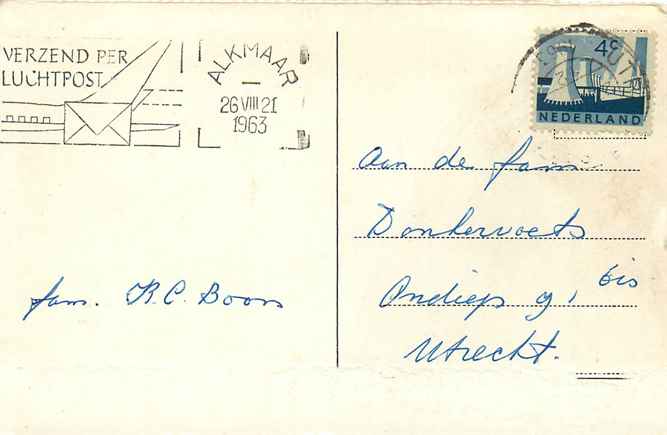 VERZEND PER
LUCHTPOST
ALKMAAR
26 VIII 21
1963
4c
NEDERLAND
Aan de fam
Donkervoets
Ondiep 91 bis
Utrecht.
fam. K.C. Boon